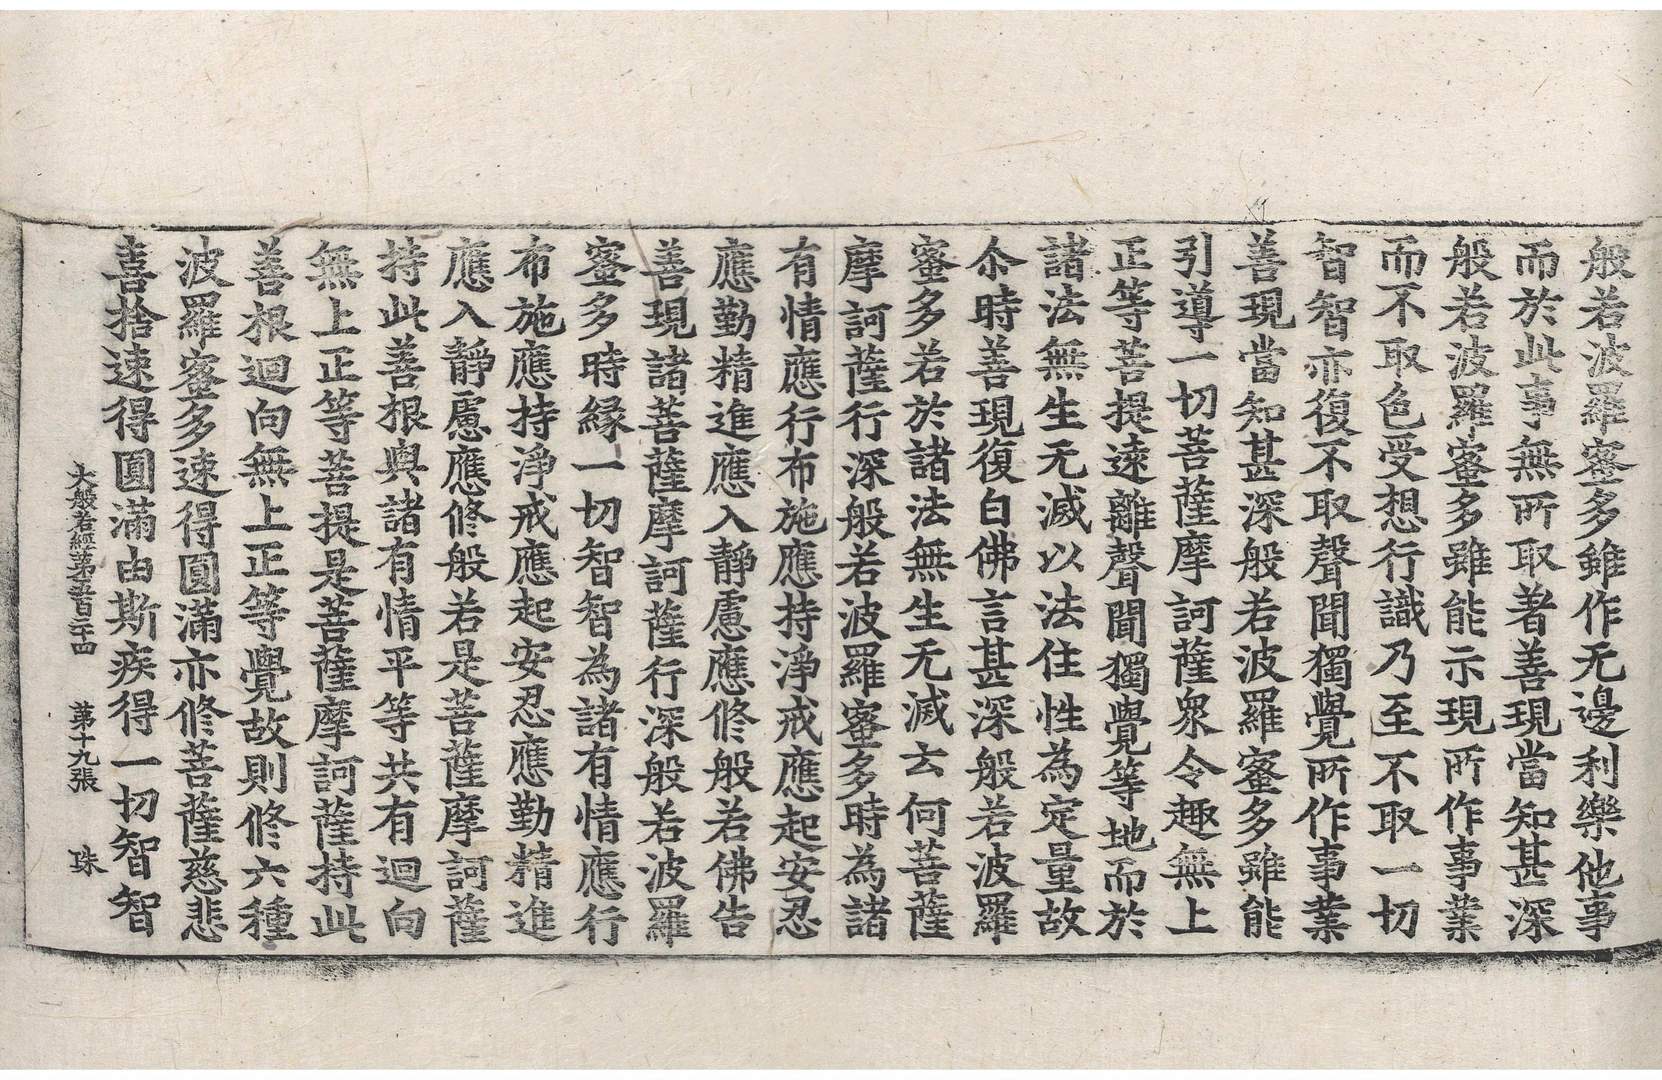 般若波羅蜜多雖作无邊利樂他事
而於此事無所取著善現當知甚深
般若波羅蜜多雖能示現所作事業
而不取色受想行識乃至不取一切
智智亦復不取聲聞獨覺所作事業
善現當知甚深般若波羅蜜多雖能
引導一切菩薩摩訶薩衆令趣無上
正等菩提遠離聲聞獨覺等地而於
諸法無生无滅以法住性為定量故
尒時善現復白佛言甚深般若波羅
蜜多若於諸法無生无滅云何菩薩
摩訶薩行深般若波羅蜜多時為諸
有情應行布施應持淨戒應起安忍
應勤精進應入靜慮應修般若佛告
善現諸菩薩摩訶薩行深般若波羅
蜜多時緣一切智智為諸有情應行
布施應持淨戒應起安忍應勤精進
應入靜慮應修般若是菩薩摩訶薩
持此善根與諸有情平等共有迴向
無上正等菩提是菩薩摩訶薩持此
善根迴向無上正等覺故則修六種
波羅蜜多速得圓滿亦修菩薩慈悲
喜捨速得圓滿由斯疾得一切智智
大般若經第五百二十四 第十九張 珠